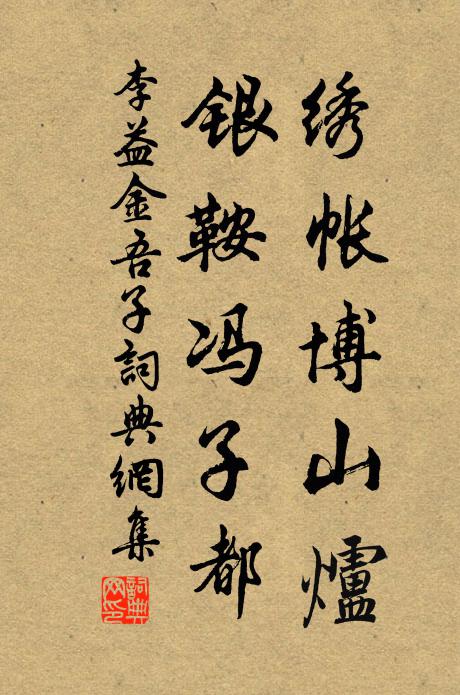 绣帐博山爐
银鞍冯子都
李益金吾子詞典網集
詞典网印